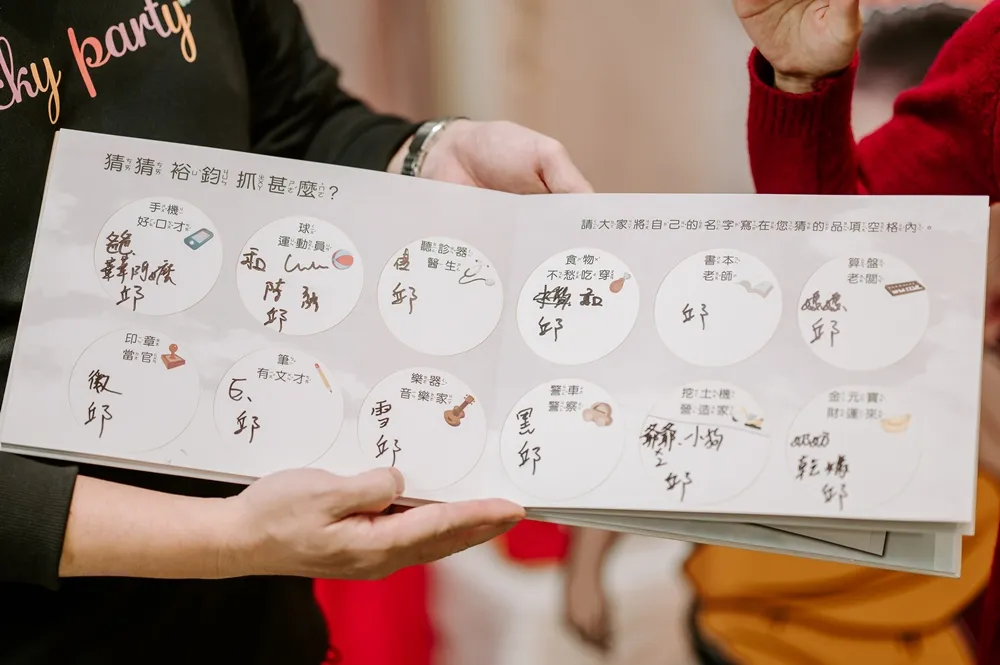 ky party
猜猜 裕鈞 抓甚麼？
請大家將自己的名字寫在您猜的品項空格內。
手機
好口才
邱
球
運動員
邱
聽診器
醫生
邱
食物
不愁吃穿
邱
書本
老師
邱
算盤
老闆
媽媽
邱
印章
當官
徵
邱
筆
有文才
E、
邱
樂器
音樂家
雪
邱
警車
警察
黑
邱
挖土機
營造家
爺爺、小狗
邱
金元寶
財運來
奶奶
乾媽
邱